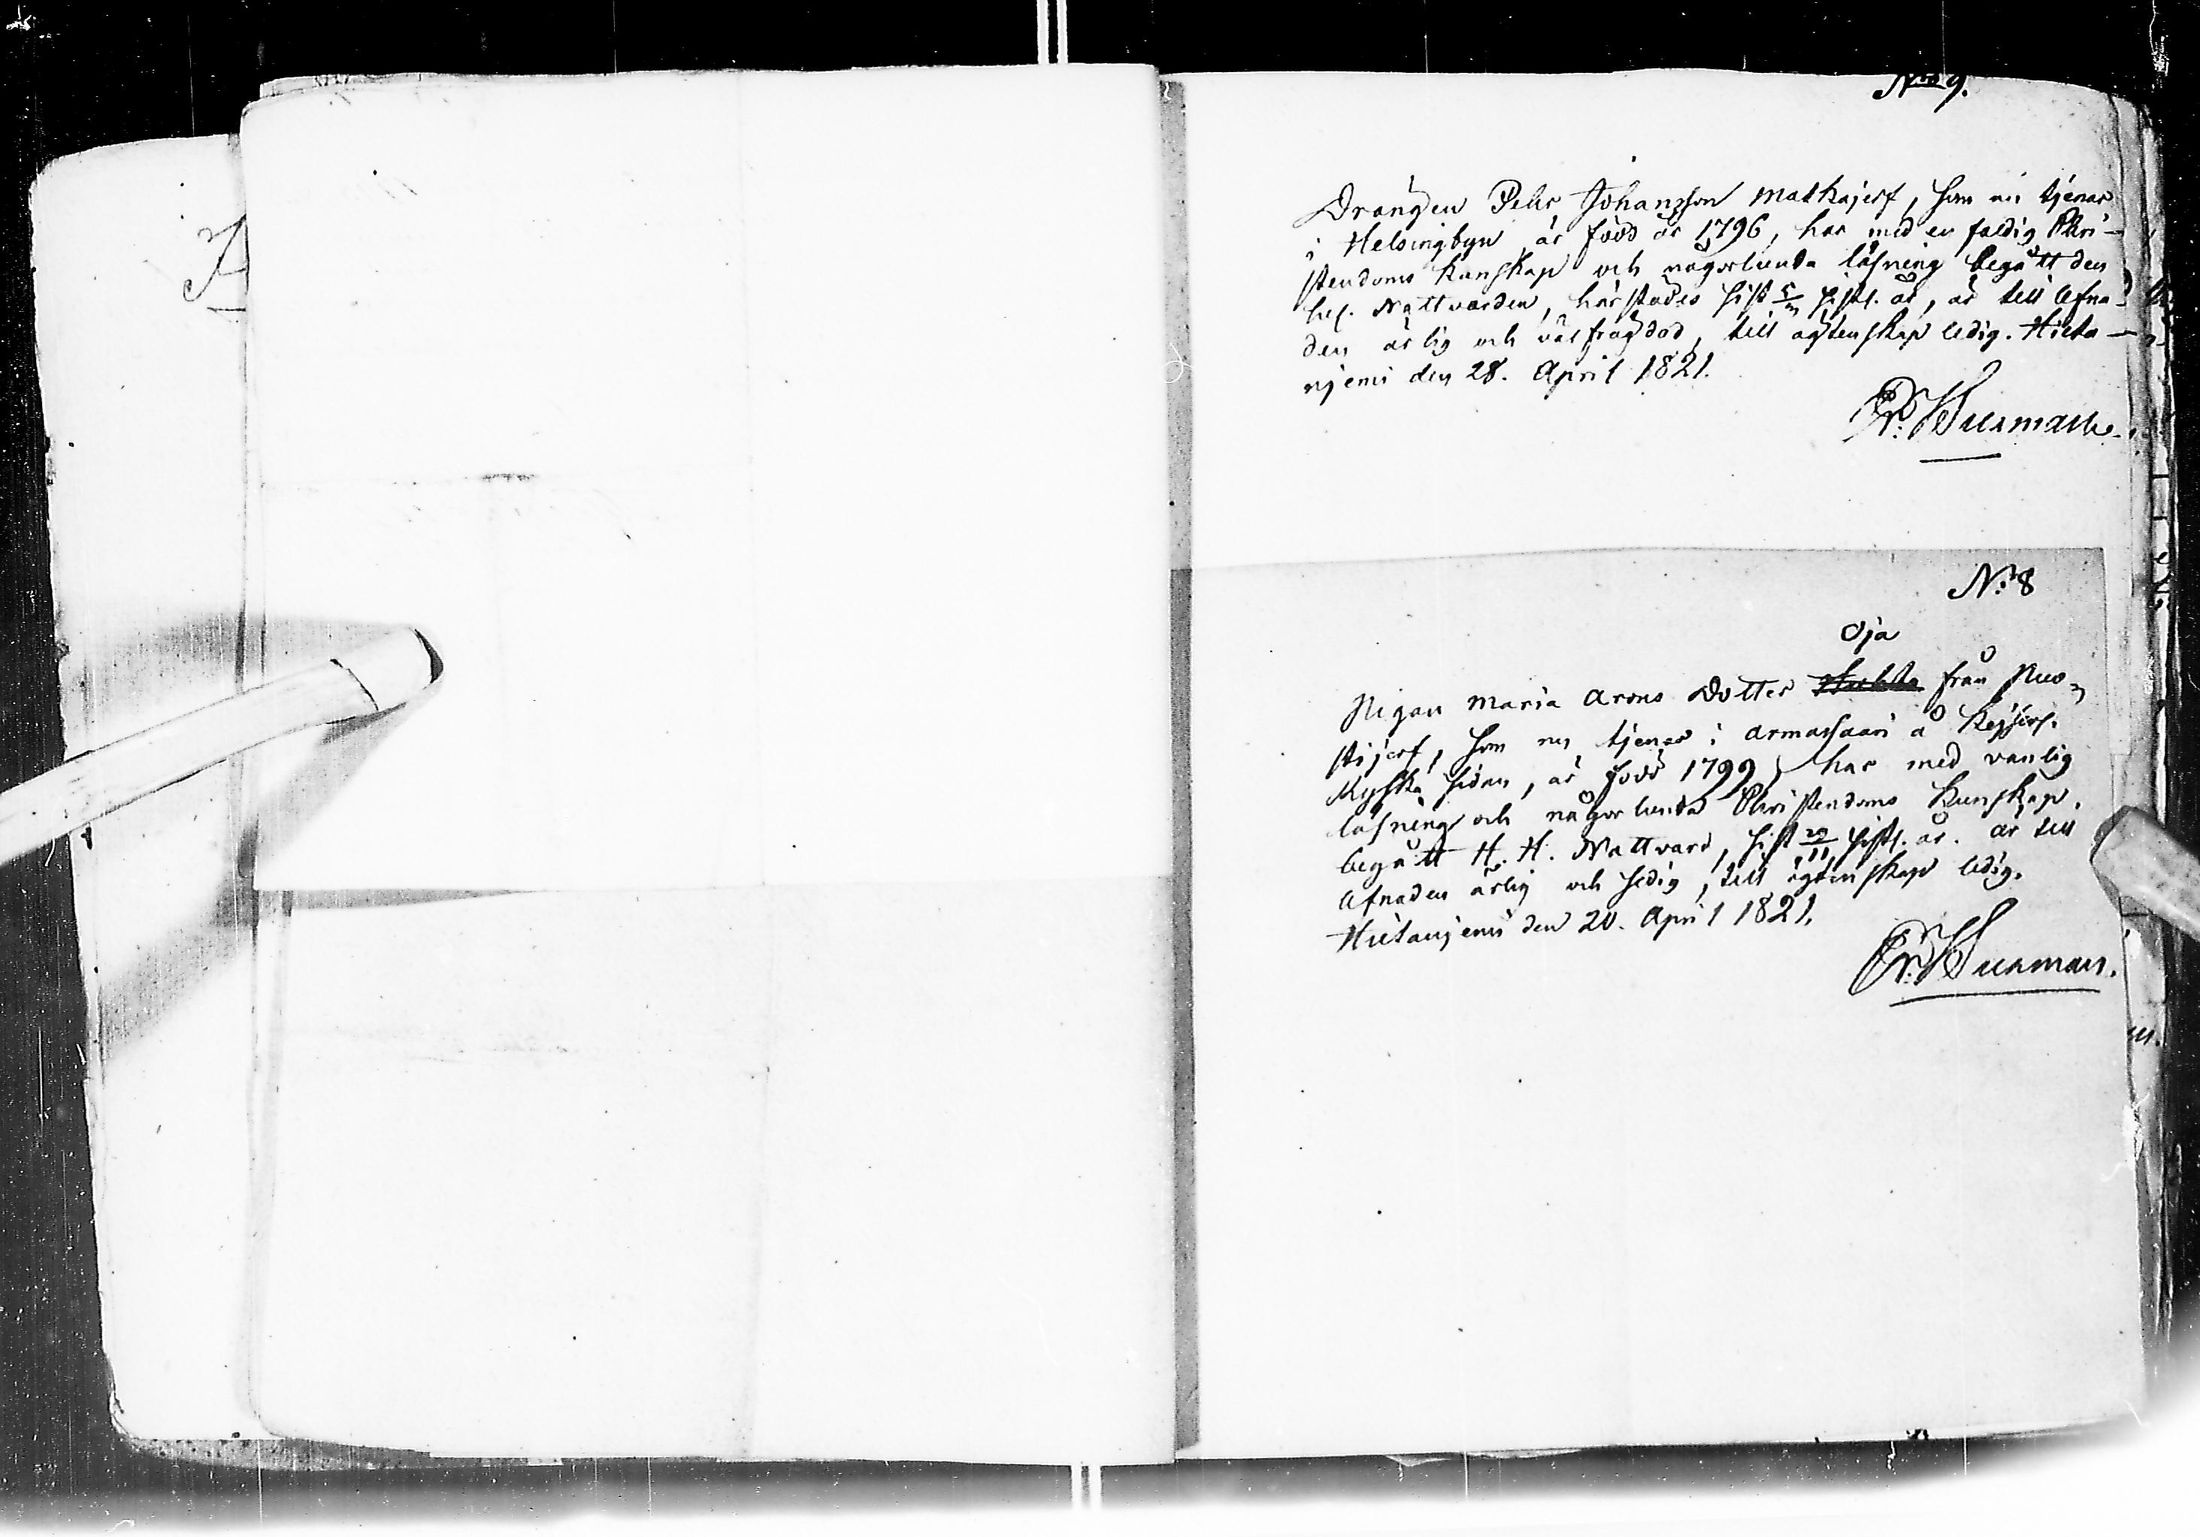 No 9.
Drängen Pehr Johansson Matkajerf, som nu tjenar
i Helsingbyn är född år 1796, har med en faldig Chri-
stendoms kunskap och någorlunda läsning begått den
hel. Nattvarden, härstädes sist sistl. år, är till lefna-
den ärlig och välfrägdad, till ägtenskap ledig. Hieta-
niemi den 28. April 1821.
P. Wurmark.
No 8
Oja
Pigan Maria Arons Dotter från Ruo-
stijerf, som nu tjenar i Armassaari å Kejserl.
Ryska sidan, är född 1799, har med vanlig
läsning och någorlunda Christendoms kunskap,
begått H. H. Nattvard, sist 29/11 sistl. år. är till
lefnaden ärlig och sedig, till ägtenskap ledig.
Hietaniemi den 20. April 1821.